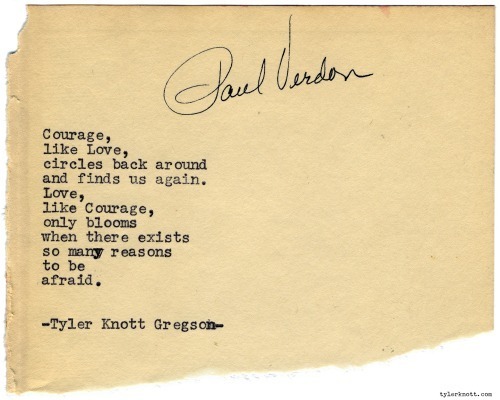 Paul Verdon
Courage,
like Love,
circles back around
and finds us again.
Love,
like Courage,
only blooms
when there exists
so many reasons
to be
afraid.
-Tyler Knott Gregson-
tylerknott.com